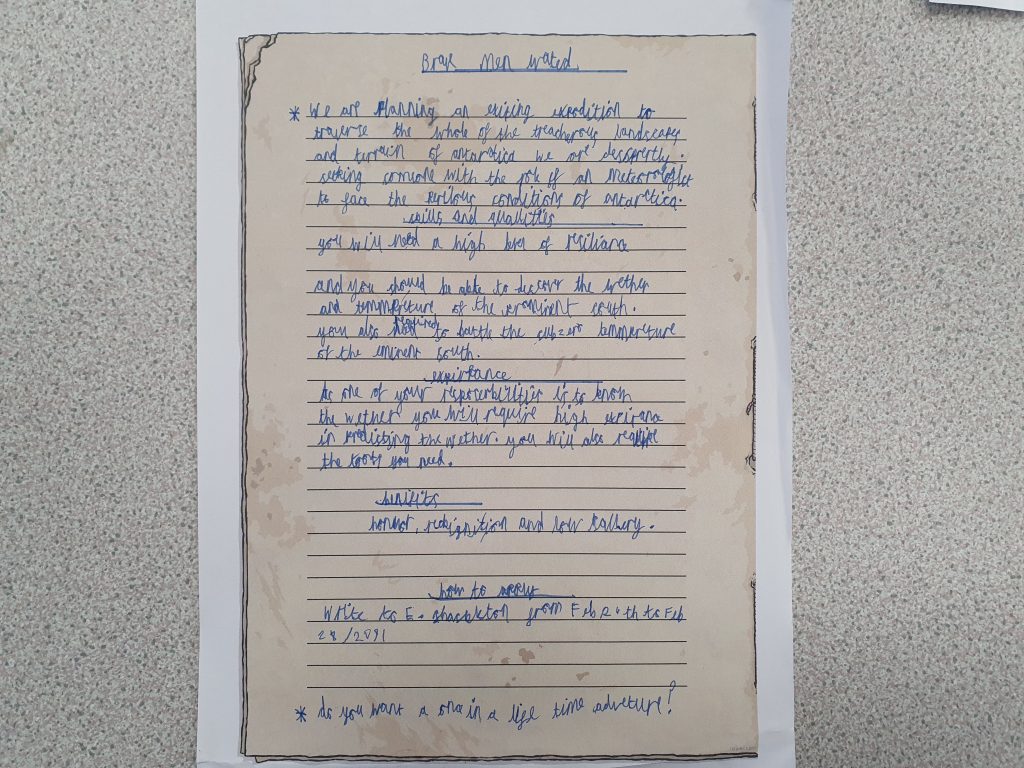 Brave Men wated
* We are planning an exiting expodition to
traverse the whole of the treacherous landscapes
and terrain of antarctica we are despertly.
seeking comeone with the job of an Meteorologist
to face the perilous conditions of antarctica.
skills and quallities
you will need a high level of resiliance
and you should be able to discover the wether
and tempreture of the prominent south.
you also required to battle the subzero temmperture
of the eminent south.
expirtance
As one of your resposerbilities is to know
the wether you will require high expirance
in predicting the wether. you will also require
the tools you need.
benifits
honnor, recignition and low sallery.
how to apply
Write to E. shackleton from Feb
28/
* do you want a once in a life time adveture!